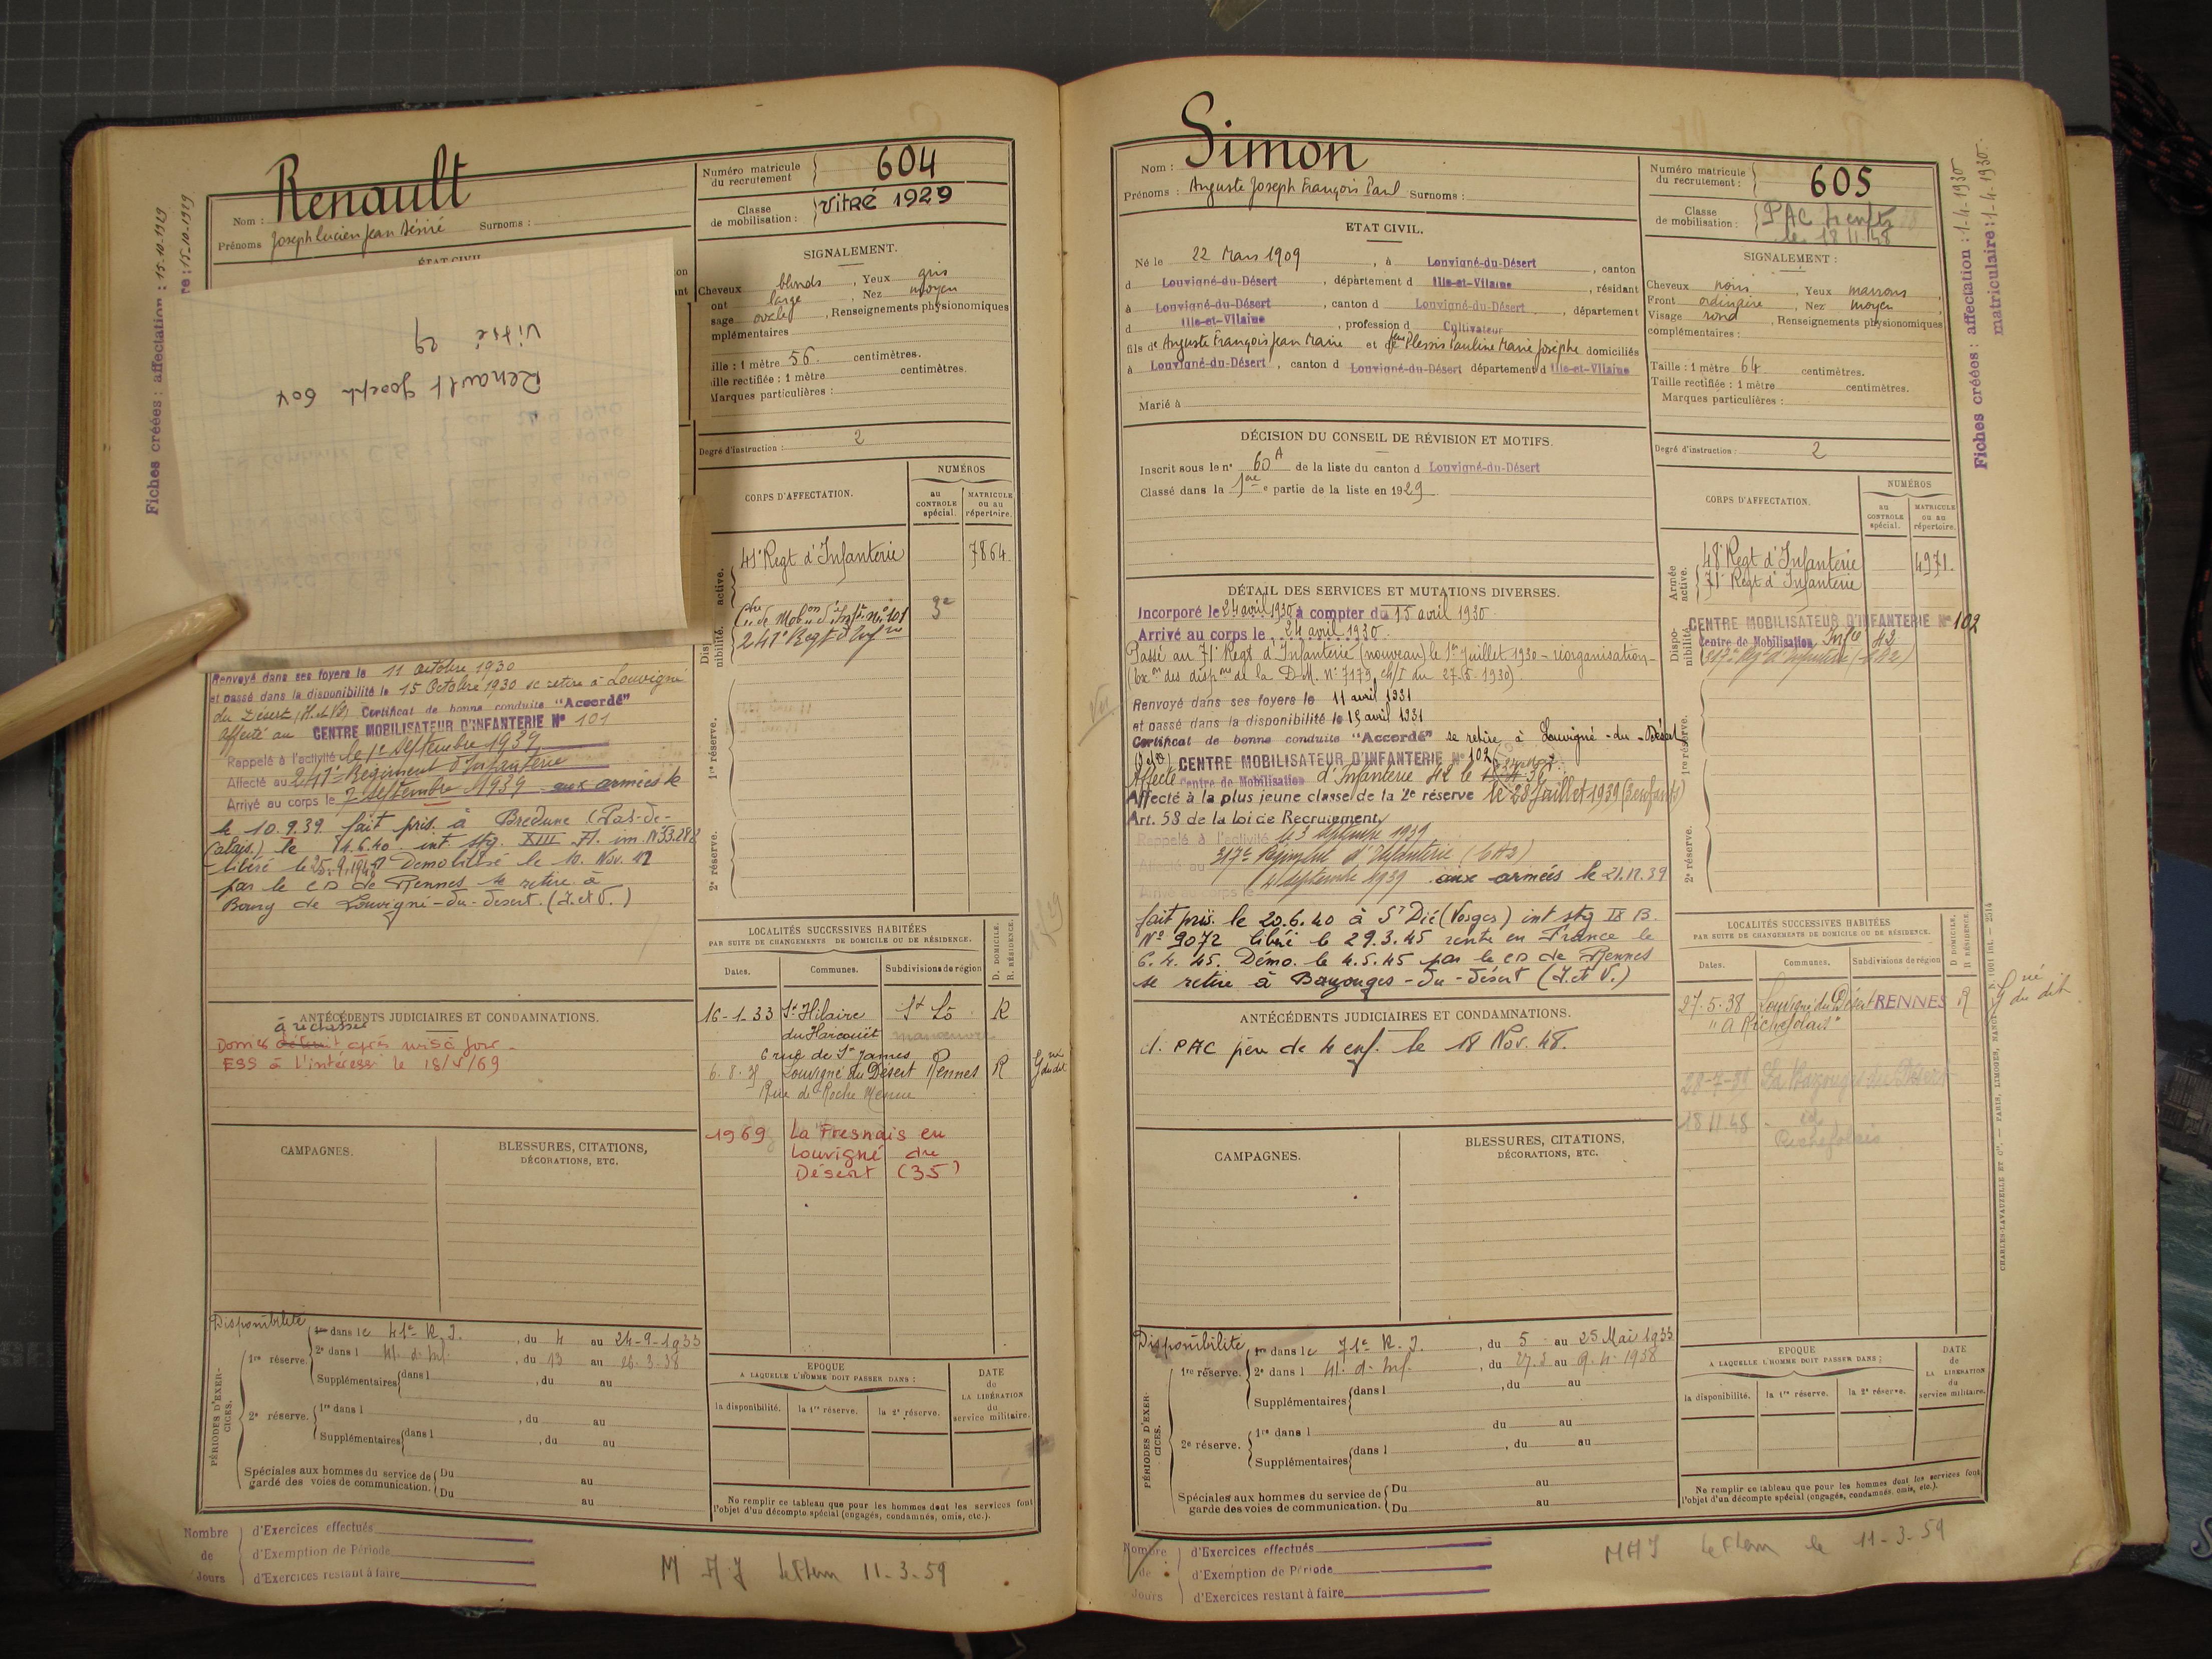 Renault
Nom :
Prénoms Joseph Lucien Jean Désiré Surnoms :
Numéro matricule du recrutement 604
Classe de mobilisation : Vitré 1929
ÉTAT CIVIL
Vitré 29
Renault Joseph 604
Fiches créées : affectation : 15-10-1929
re : 15-10-1929
SIGNALEMENT.
Cheveux blonds, Yeux gris
ont large, Nez moyen
sage ovale, Renseignements physionomiques
mplémentaires
ille : 1 mètre 56. centimètres.
ille rectifiée : 1 mètre centimètres.
Marques particulières :
Degré d'instruction : 2
CORPS D'AFFECTATION.
NUMÉROS
au CONTROLE spécial.
MATRICULE ou au répertoire.
active.
41e Regt d'Infanterie 7864.
Disponibilité.
Ctre de Mobon d'Inftie no 101 3e
241e Regt d'Infie
1re réserve.
2e réserve.
Renvoyé dans ses foyers le 11 octobre 1930
et passé dans la disponibilité le 15 Octobre 1930 se retire à Louvigné
du Désert (I.et V.) Certificat de bonne conduite "Accordé"
affecté au CENTRE MOBILISATEUR D'INFANTERIE No 101
Rappelé à l'activité le 1er Septembre 1939
Affecté au 241e Régiment d'Infanterie
Arrivé au corps le 7 septembre 1939 aux armées le
le 10.9.39. fait pris. à Bredune (Pas-de-
Calais.) le 4.6.40. int stg. XIII A. im. N°33.282
- libéré le 25.9.1942 Démobilisé le 10. Nov. 42
par le CD de Rennes se retire à
Bourg de Louvigné-du-Désert. (I.et V.)
ANTÉCÉDENTS JUDICIAIRES ET CONDAMNATIONS.
ESS à l'intéressé le 18/V/69
LOCALITÉS SUCCESSIVES HABITÉES
PAR SUITE DE CHANGEMENTS DE DOMICILE OU DE RÉSIDENCE.
D. DOMICILE.
R. RÉSIDENCE.
Dates. Communes. Subdivisions de région
16-1-33 St Hilaire St Lô R
du Harcouët manoeuvre
6 rue de St James
6.8.35 Louvigné du Désert Rennes R
Rue de Roche
1969 La Fresnais en
Louvigné du
Désert (35)
CAMPAGNES.
BLESSURES, CITATIONS,
DÉCORATIONS, ETC.
Disponibilité
PÉRIODES D'EXERCICES.
1re réserve.
1re dans le 41e R. I., du 4 au 24-9-1933
2e dans l M. d'Inf., du 13 au 26.3.38
Supplémentaires dans l , du au
2e réserve.
1re dans l , du au
Supplémentaires dans l , du au
Spéciales aux hommes du service de garde des voies de communication. Du au
Du au
EPOQUE
A LAQUELLE L'HOMME DOIT PASSER DANS :
la disponibilité. la 1re réserve. la 2e réserve.
DATE de LA LIBÉRATION du service militaire.
Ne remplir ce tableau que pour les hommes dont les services font
l'objet d'un décompte spécial (engagés, condamnés, omis, etc.).
Nombre de Jours
d'Exercices effectués
d'Exemption de Période
d'Exercices restant à faire
M A J 11-3-59
Simon
Nom :
Prénoms : Auguste Joseph François Paul Surnoms :
Numéro matricule du recrutement : 605
Classe de mobilisation : PAC 4 enfts
le 18 11.48
ETAT CIVIL.
Né le 22 Mars 1909, à Louvigné-du-Désert, canton
d Louvigné-du-Désert, département d Ille-et-Vilaine, résidant
à Louvigné-du-Désert, canton d Louvigné-du-Désert, département
d Ille-et-Vilaine, profession d Cultivateur
fils de Auguste François Jean Marie et de Plessis Pauline Marie Josèphe domiciliés
à Louvigné-du-Désert, canton d Louvigné-du-Désert département d Ille-et-Vilaine
Marié à
SIGNALEMENT :
Cheveux noirs, Yeux marrons
Front ordinaire, Nez moyen
Visage rond, Renseignements physionomiques
complémentaires :
Taille : 1 mètre 64 centimètres.
Taille rectifiée : 1 mètre centimètres.
Marques particulières :
Degré d'instruction : 2
Fiches créées : affectation : 1-4-1930
matriculaire : 1-4-1930.
DÉCISION DU CONSEIL DE RÉVISION ET MOTIFS.
Inscrit sous le no 60A de la liste du canton d Louvigné-du-Désert
Classé dans la 1re partie de la liste en 1929
CORPS D'AFFECTATION.
NUMÉROS
au CONTROLE spécial.
MATRICULE ou au répertoire.
Armée active.
48e Regt d'Infanterie 4971.
71e Regt d'Infanterie
Disponibilité
CENTRE MOBILISATEUR D'INFANTERIE No 102
Centre de Mobilisation Infie 42
317e Rgt d'Infanterie
1re réserve.
2e réserve.
DÉTAIL DES SERVICES ET MUTATIONS DIVERSES.
Incorporé le 24 avril 1930 à compter du 15 avril 1930.
Arrivé au corps le 24 avril 1930.
Passé au 71e Regt d'Infanterie (nouveau) le 1er Juillet 1930 - réorganisation -
(Exon des dispons de la D.M. No 7179 du 27.5-1930).
Renvoyé dans ses foyers le 11 avril 1931
et passé dans la disponibilité le 15 avril 1931
Certificat de bonne conduite "Accordé" se retire à Louvigné-du-Désert
CENTRE MOBILISATEUR D'INFANTERIE No 102
Affecté Centre de Mobilisation d'Infanterie 42 le
Affecté à la plus jeune classe de la 2e réserve le 28 Juillet 1939 (3 enfants)
Art. 58 de la loi de Recrutement
Rappelé à l'activité le 3 septembre 1939
Affecté au 317e Régiment d'Infanterie
Arrivé au corps le 4 septembre 1939 aux armées le 21.12.39
fait pris. le 20.6.40 à St Dié (Vosges) int stg IX B.
No 9072 libéré le 29.3.45 rentré en France le
6.4.45. Démo. le 4.5.45 par le CD de Rennes
se retire à Bazouges-du-Désert (I.et V.)
ANTÉCÉDENTS JUDICIAIRES ET CONDAMNATIONS.
d. PAC père de 4 enf. le 18 Nov. 48.
LOCALITÉS SUCCESSIVES HABITÉES
PAR SUITE DE CHANGEMENTS DE DOMICILE OU DE RÉSIDENCE.
D. DOMICILE.
R. RÉSIDENCE.
Dates. Communes. Subdivisions de région
27-5-38 Louvigné du Désert RENNES R
"à Richefolais"
28-7-39 La Bazouges du Désert
18 11.48 Richefolais
CAMPAGNES.
BLESSURES, CITATIONS,
DÉCORATIONS, ETC.
Disponibilité
PÉRIODES D'EXERCICES.
1re réserve.
1re dans le 71e R. I., du 5 au 25 Mai 1933
2e dans l , du 27.3 au 9.4.1938
Supplémentaires dans l , du au
du au
2e réserve.
1re dans l
Supplémentaires dans l , du au
Spéciales aux hommes du service de garde des voies de communication. Du au
Du au
EPOQUE
A LAQUELLE L'HOMME DOIT PASSER DANS :
la disponibilité. la 1re réserve. la 2e réserve.
DATE de LA LIBÉRATION du service militaire.
Ne remplir ce tableau que pour les hommes dont les services font
l'objet d'un décompte spécial (engagés, condamnés, omis, etc.).
CHARLES-LAVAUZELLE ET Cie. — PARIS, LIMOGES, NANCY
Nombre de Jours
d'Exercices effectués
d'Exemption de Période
d'Exercices restant à faire
MAJ le 11-3-59